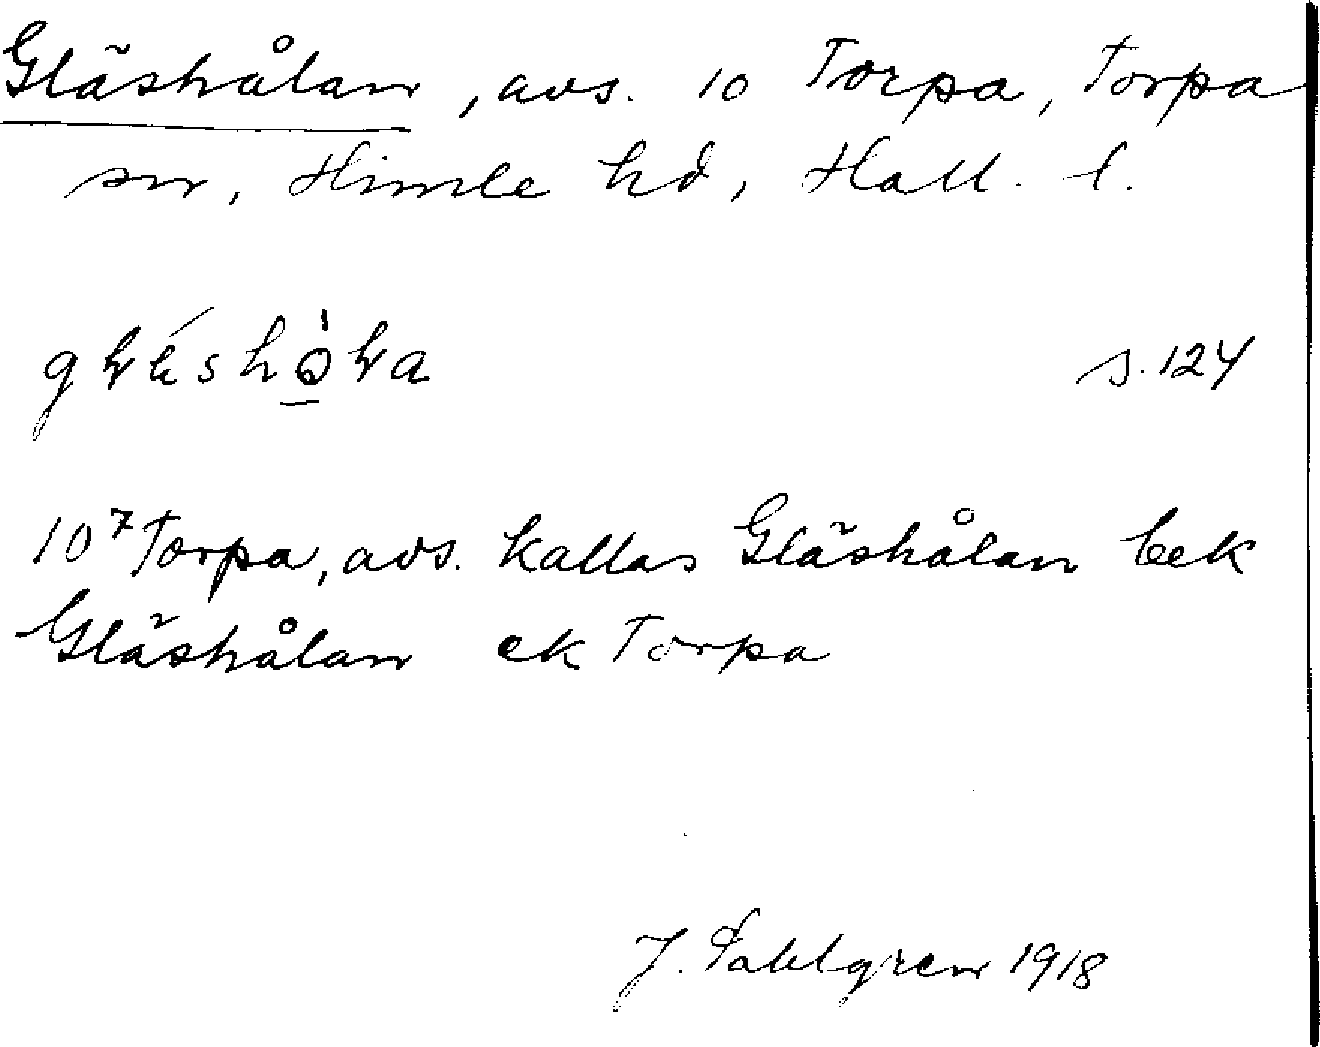 Gläshålan, avs. 10 Torpa, Torpa
sn, Himle hd, Hall. l.
s. 124
10⁷ Torpa, avs. kallas Gläshålan bek
Gläshålan ek Torpa
J. Sahlgren 1918